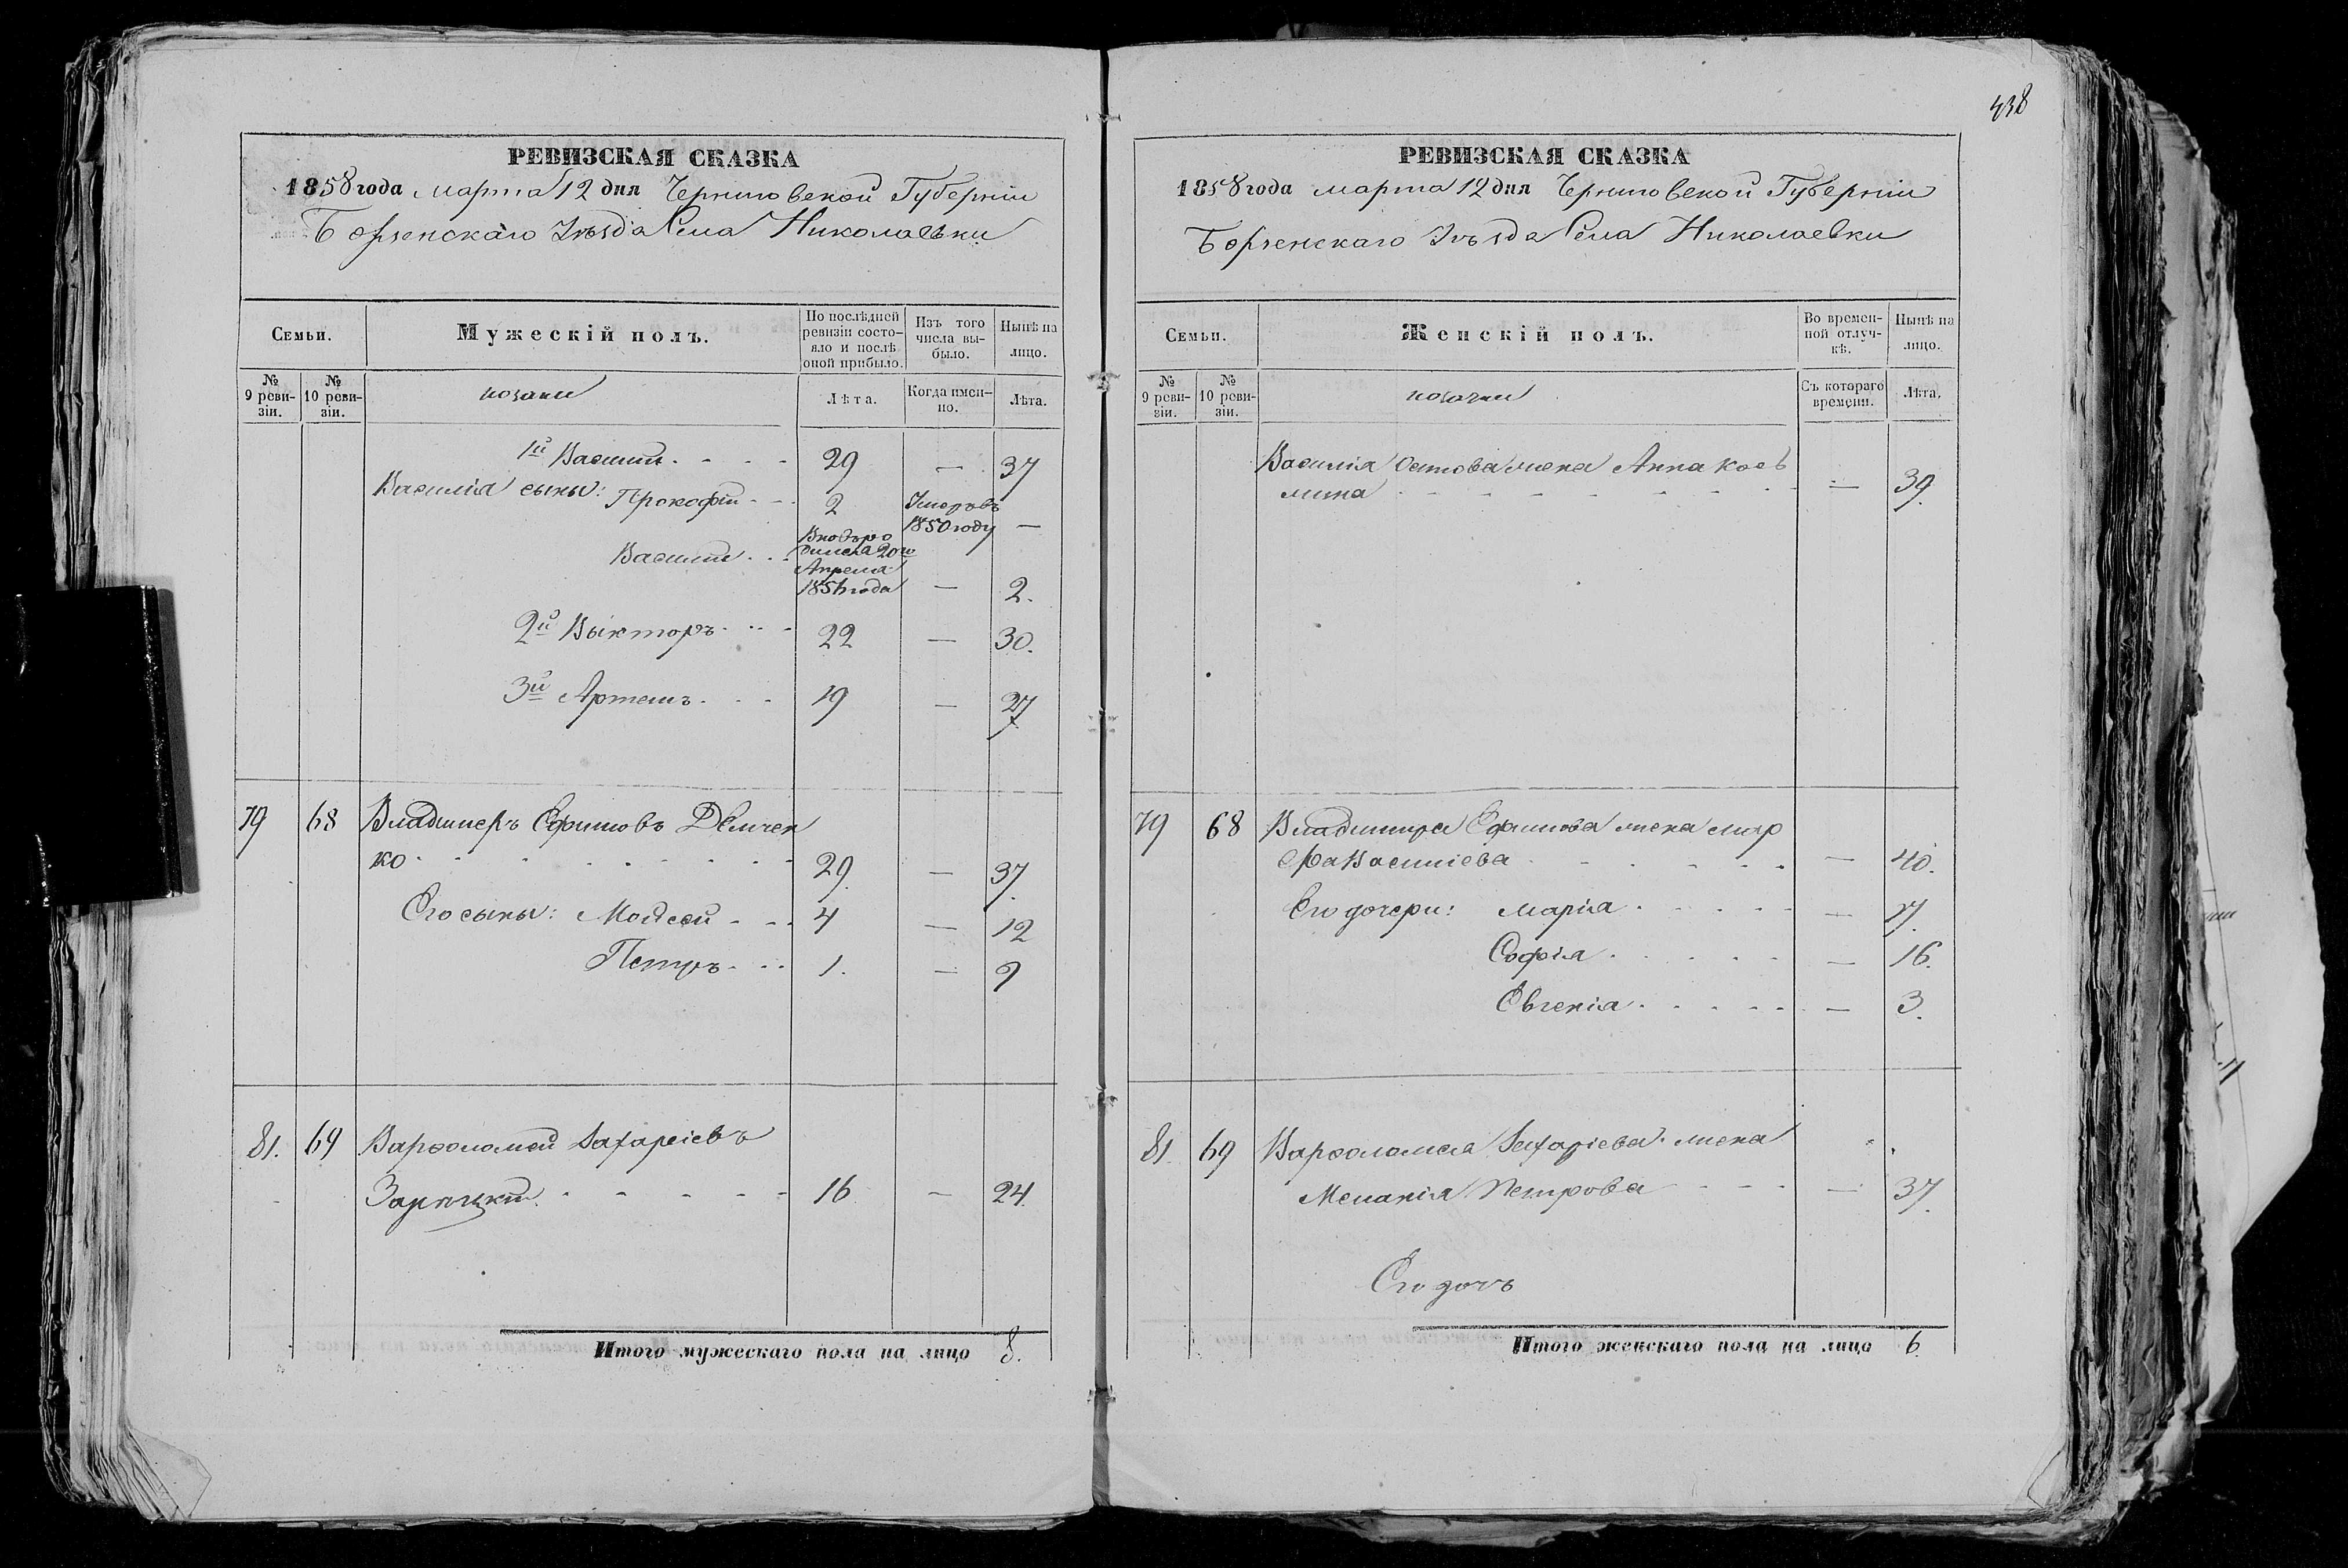 438
РЕВИЗСКАЯ СКАЗКА
1858 года марта 12 дня Черниговской Губерніи
Борзенскаго Уѣзда Села Николаевки
Семьи.
Мужескій полъ.
По послѣдней ревизіи состояло и послѣ оной прибыло.
Изъ того числа выбыло.
Нынѣ на лицо.
№ 9 ревизіи.
№ 10 ревизіи.
козаки
Лѣта.
Когда именно.
Лѣта.
1й Василій 29 — 37
Василія сыны: Прокофій 2 Умеръ въ 1850 году —
Василій Вновь родился 20го Апреля 185 года — 2.
2й Выкторъ 22 — 30.
3й Артемъ 19 — 27
79 68 Владимеръ Ефимовъ Демчен
ко 29. — 37.
Его сыны: Мойсей 4 — 12
Петръ 1. — 9
81. 69 Варѳоломей Захаріевъ
Зарицкій 16 — 24.
Итого мужескаго пола на лицо 8.
РЕВИЗСКАЯ СКАЗКА
1858 года марта 12 дня Черниговской Губерніи
Борзенскаго Уѣзда Села Николаевки
Семьи.
Женскій полъ.
Во временной отлучкѣ.
Нынѣ на лицо.
№ 9 ревизіи.
№ 10 ревизіи.
козачки
Съ котораго времени.
Лѣта.
Василія жена Анна Козь
мина — 39.
79 68 Владимира Ефимова жена Мар
фа Василіева — 40.
Его дочери: Марія —
Софія — 16.
Евгенія — 3.
81 69 Варѳоломея Захаріева жена
Меланія Петрова — 37.
Его дочь
Итого женскаго пола на лицо 6.